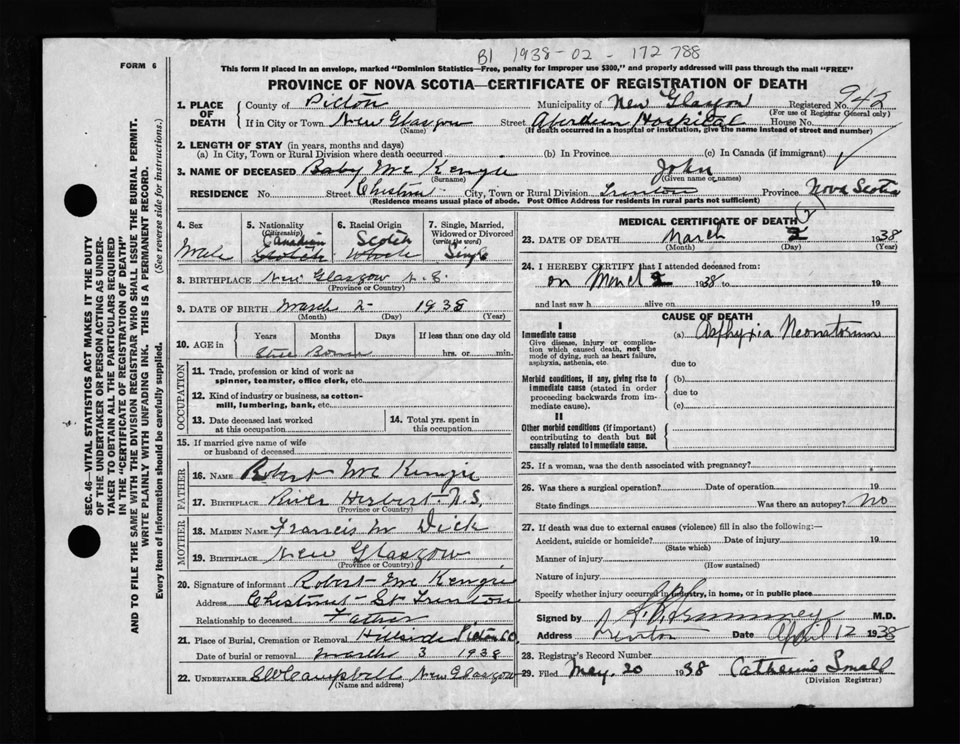 B1 1938-02-172788
FORM 6
This form if placed in an envelope, marked "Dominion Statistics—Free, penalty for improper use $300," and properly addressed will pass through the mail "FREE"
PROVINCE OF NOVA SCOTIA—CERTIFICATE OF REGISTRATION OF DEATH
SEC. 46—VITAL STATISTICS ACT MAKES IT THE DUTY
OF THE UNDERTAKER OR PERSON ACTING AS UNDER-
TAKER TO OBTAIN ALL THE PARTICULARS REQUIRED
IN THE "CERTIFICATE OF REGISTRATION OF DEATH"
AND TO FILE THE SAME WITH THE DIVISION REGISTRAR WHO SHALL ISSUE THE BURIAL PERMIT.
WRITE PLAINLY WITH UNFADING INK. THIS IS A PERMANENT RECORD.
Every item of information should be carefully supplied. (See reverse side for instructions.)
1. PLACE OF DEATH
County of Pictou Municipality of New Glasgow Registered No. 942
(For use of Registrar General only)
If in City or Town New Glasgow Street Aberdeen Hospital House No.
(Name) (If death occurred in a hospital or institution, give the name instead of street and number)
2. LENGTH OF STAY (in years, months and days)
(a) In City, Town or Rural Division where death occurred (b) In Province (c) In Canada (if immigrant)
3. NAME OF DECEASED Baby McKenzie John
(Surname) (Given name or names)
RESIDENCE No. Street Chestnut City, Town or Rural Division Trenton Province Nova Scotia
(Residence means usual place of abode. Post Office Address for residents in rural parts not sufficient)
4. Sex Male
5. Nationality (Citizenship) Canadian
6. Racial Origin Scotch
7. Single, Married, Widowed or Divorced (write the word) Single
8. BIRTHPLACE New Glasgow N.S.
(Province or Country)
9. DATE OF BIRTH March 2 1938
(Month) (Day) (Year)
10. AGE Years Months Days If less than one day old
Still Born hrs. or min.
OCCUPATION
11. Trade, profession or kind of work as spinner, teamster, office clerk, etc.
12. Kind of industry or business, as cotton-mill, lumbering, bank, etc.
13. Date deceased last worked at this occupation
14. Total yrs. spent in this occupation
15. If married give name of wife or husband of deceased
FATHER
16. NAME Robert McKenzie
17. BIRTHPLACE River Hebert N.S.
(Province or Country)
MOTHER
18. MAIDEN NAME Francis M Dick
19. BIRTHPLACE New Glasgow
(Province or Country)
20. Signature of informant Robert McKenzie
Address Chestnut St Trenton
Relationship to deceased Father
21. Place of Burial, Cremation or Removal Hillside Pictou Co.
Date of burial or removal March 3 1938
22. UNDERTAKER Campbell New Glasgow
(Name and address)
MEDICAL CERTIFICATE OF DEATH
23. DATE OF DEATH March 2 1938
(Month) (Day) (Year)
24. I HEREBY CERTIFY that I attended deceased from:
on March 2 1938 to 19
and last saw h alive on 19
CAUSE OF DEATH
I
Immediate cause (a) Asphyxia Neonatorum
Give disease, injury or complication which caused death, not the mode of dying, such as heart failure, asphyxia, asthenia, etc.
due to
Morbid conditions, if any, giving rise to immediate cause (stated in order proceeding backwards from immediate cause).
(b)
due to
(c)
II
Other morbid conditions (if important) contributing to death but not causally related to immediate cause.
25. If a woman, was the death associated with pregnancy?
26. Was there a surgical operation? Date of operation 19
State findings Was there an autopsy? No
27. If death was due to external causes (violence) fill in also the following:—
Accident, suicide or homicide? Date of injury 19
(State which)
Manner of injury
(How sustained)
Nature of injury
Specify whether injury occurred in industry, in home, or in public place
Signed by M.D.
Address Trenton Date April 12 1938
28. Registrar's Record Number
29. Filed May 20 1938 Catherine Small
(Division Registrar)